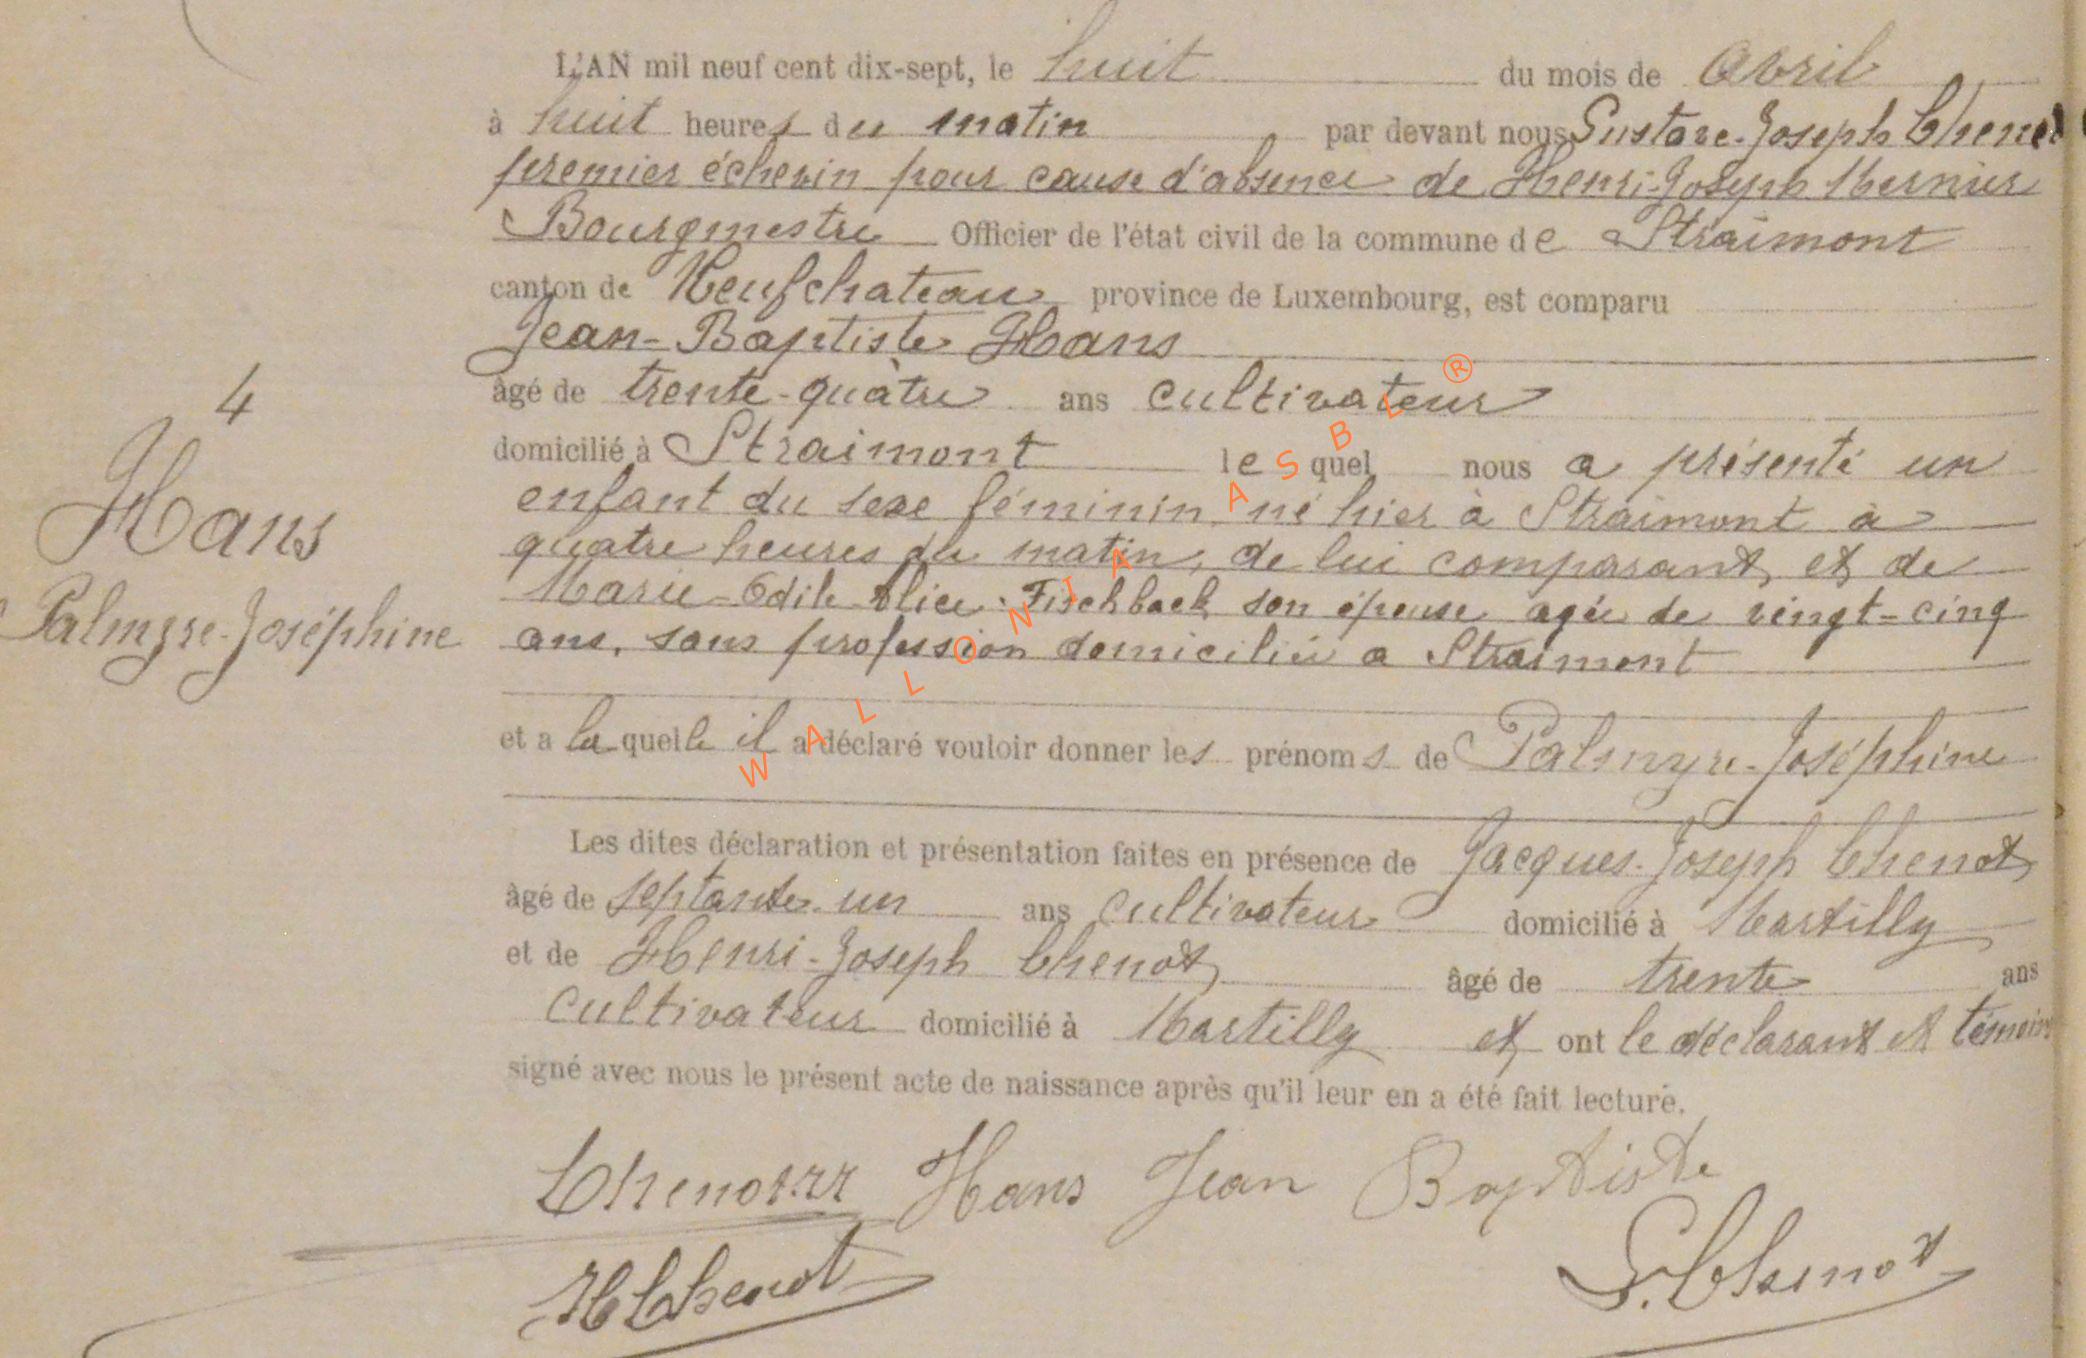 L'AN mil neuf cent dix-sept, le huit du mois de Avril
à huit heures du matin par devant nous Gustave-Joseph Chenot
premier échevin pour cause d'absence de Henri-Joseph Mernier
Bourgmestre Officier de l'état civil de la commune de Straimont
canton de Neufchateau province de Luxembourg, est comparu
Jean-Baptiste Hans
âgé de trente-quatre ans cultivateur
domicilié à Straimont lequel nous a présenté un
enfant du sexe féminin, né hier à Straimont à
quatre heures du matin, de lui comparant, et de
Marie-Odile-Alice Fischback son épouse agée de vingt-cinq
ans, sans profession domiciliée a Straimont
et a laquelle il a déclaré vouloir donner les prénoms de Palmyre-Joséphine
Les dites déclaration et présentation faites en présence de Jacques-Joseph Chenot
âgé de septante-un ans cultivateur domicilié à Martilly
et de Henri-Joseph Chenot âgé de trente ans
cultivateur domicilié à Martilly et ont le déclarant et témoins
signé avec nous le présent acte de naissance après qu'il leur en a été fait lecture.
Hans Jean Baptiste
H Chenot
G. Chenot
4
Hans
Palmyre-Joséphine
WALLONIA ASBL ®